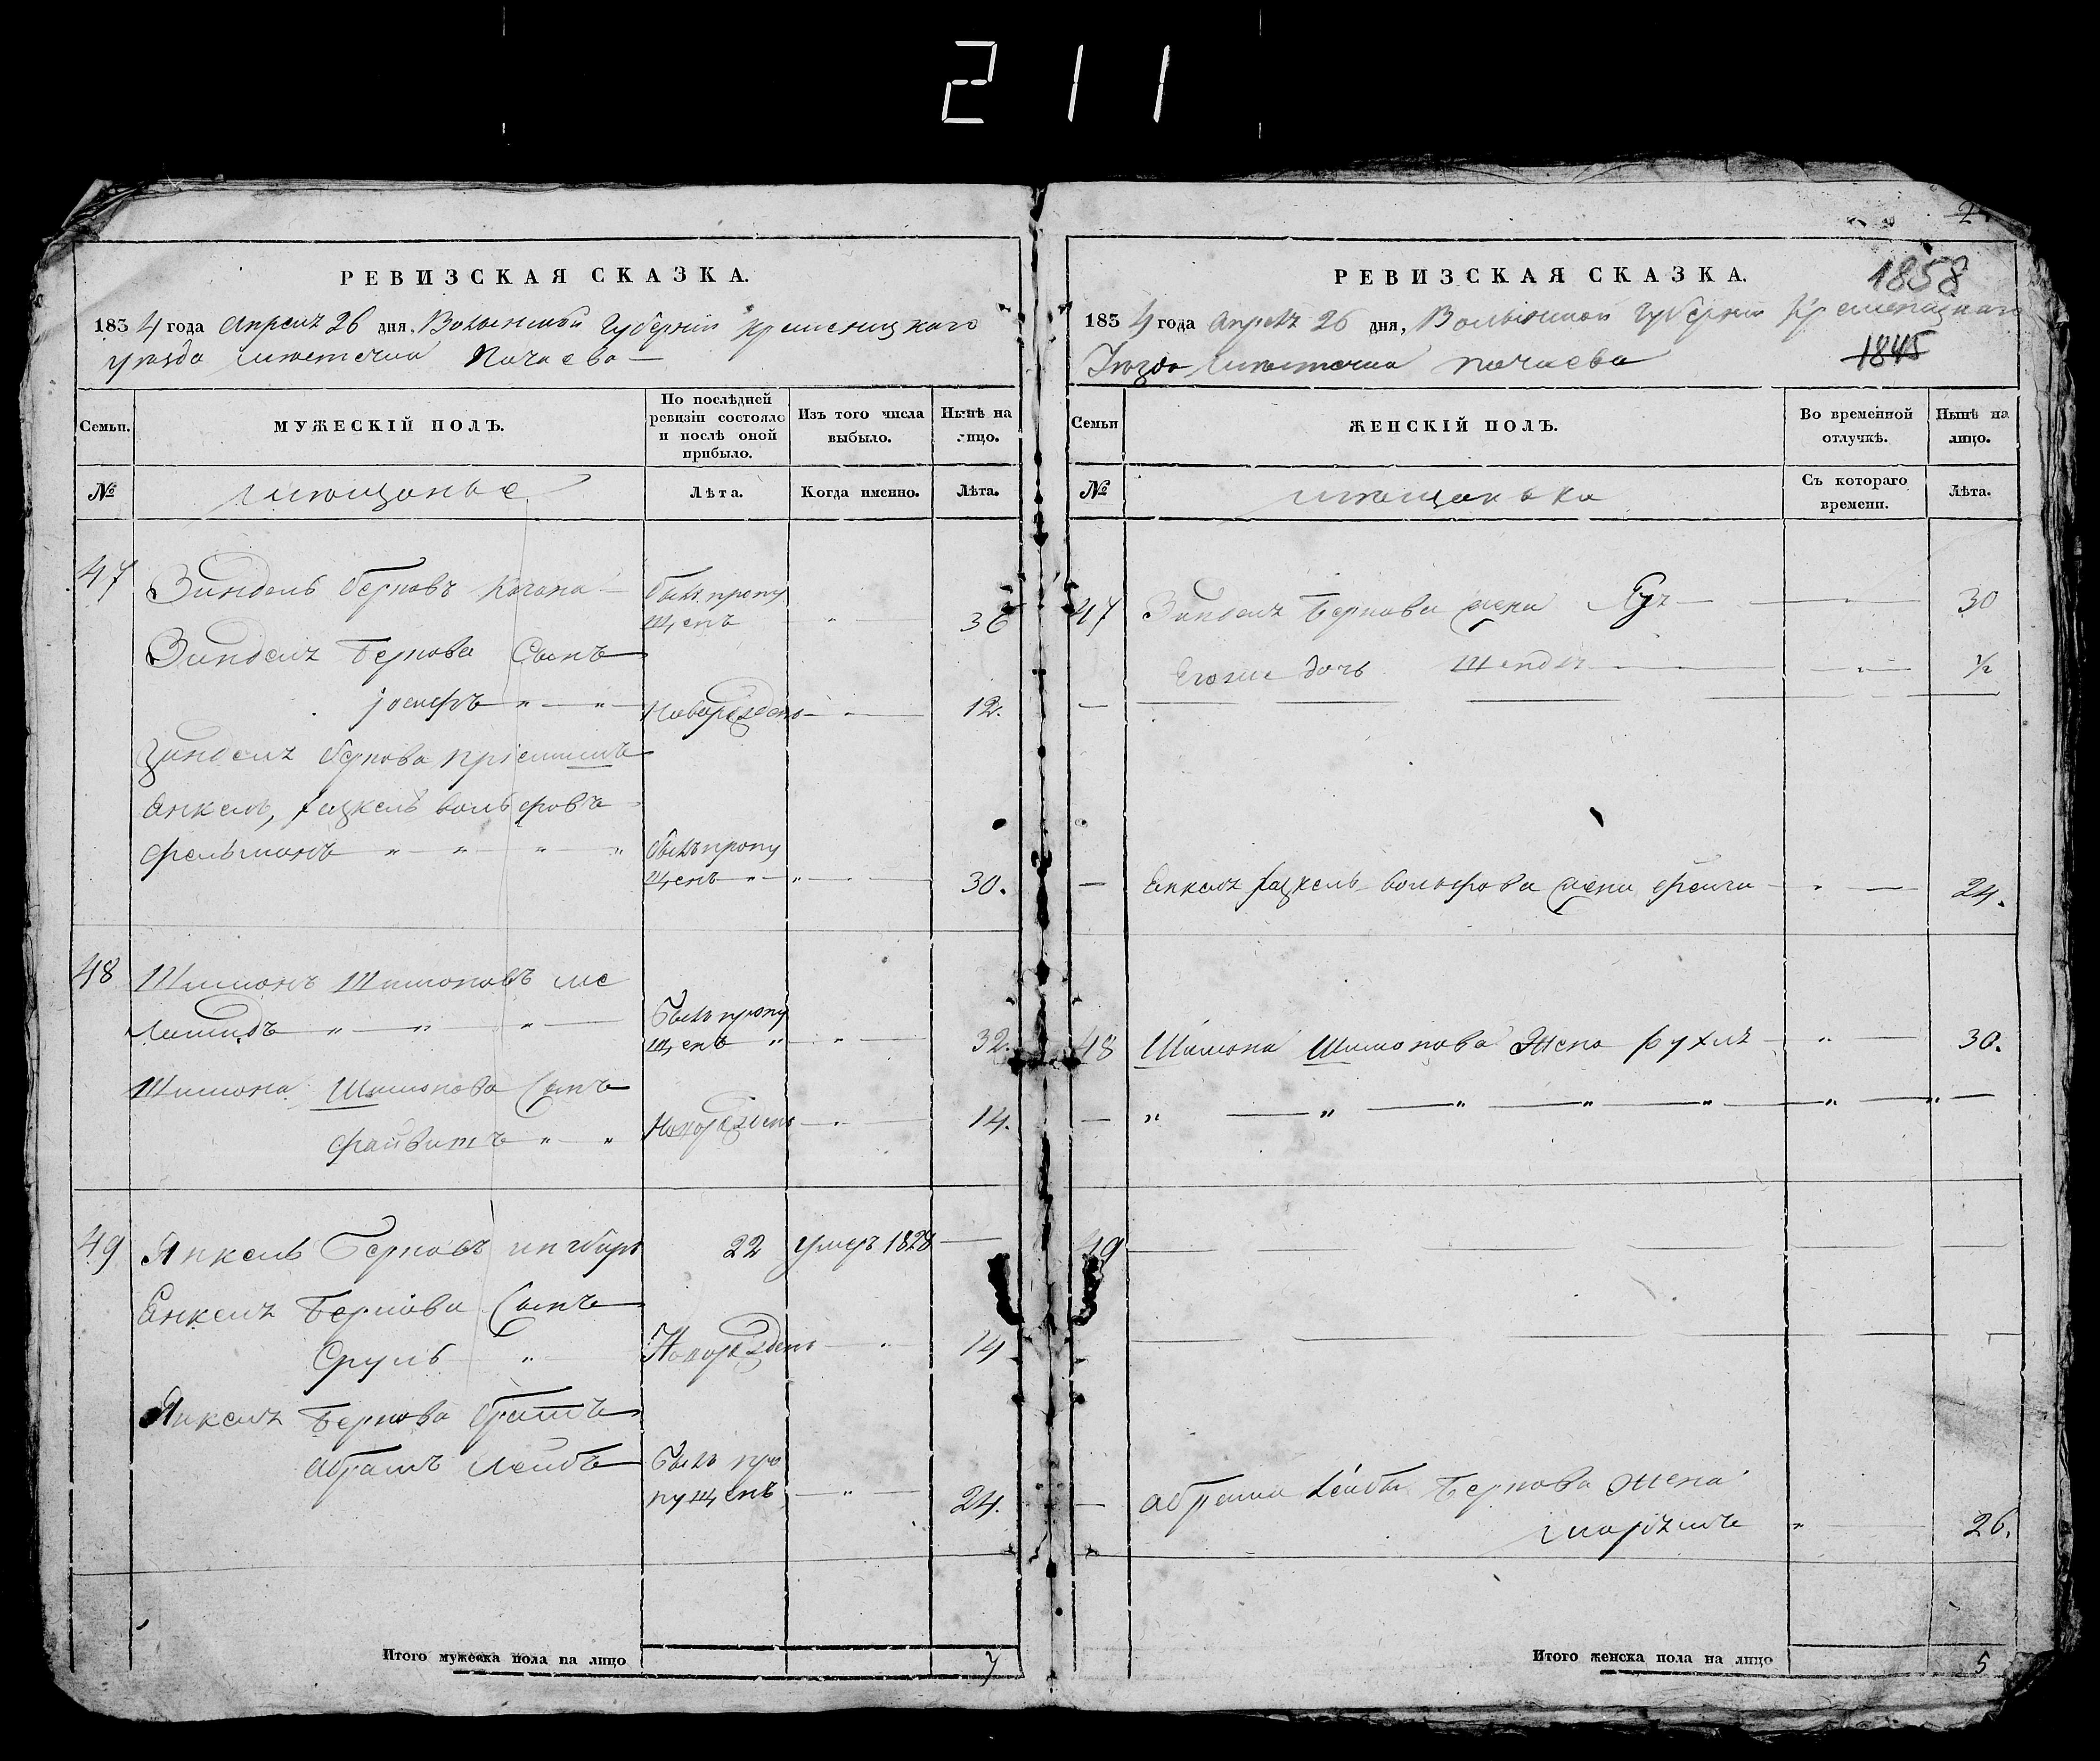 211
РЕВИЗСКАЯ СКАЗКА.
1834 года Апреля 26 дня, Волынской Губернии Кременецкаго
уезда местечка Почаева
Семьи.
МУЖЕСКІЙ ПОЛЪ.
По послѣдней ревизіи состояло и послѣ оной прибыло.
Изъ того числа выбыло.
Нынѣ на лицо.
№
мещанье
Лѣта.
Когда именно.
Лѣта.
47 Зиндель Берковъ Когана былъ пропу
щенъ " 36
Зинделя Беркова Сынъ
Іосифъ " " Новорожденъ " 12.
Зинделя Беркова пріемышъ
Енкель, Вольфовъ
Фельманъ " " " " былъ пропу
щенъ " " 30.
48 Шимонъ Шимоновъ ме
ламидъ " " " Былъ пропу
щенъ " " 32.
Шимона Шимонова Сынъ
Файвишъ " " Новорожденъ " 14.
49 Янкель Берковъ 22 умеръ 1828
Енкеля Беркова Сынъ
Сруль " Новорожденъ " 14
Янкеля Беркова братъ
Абрамъ Лейбъ Былъ про
пущенъ " 24.
Итого мужеска пола на лицо 7
2
РЕВИЗСКАЯ СКАЗКА.
1858
1834 года Апреля 26 дня, Волынской Губернии Кременецкаго
Уезда местечка Почаева
1845
Семьи
ЖЕНСКІЙ ПОЛЪ.
Во временной отлучкѣ.
Нынѣ на лицо.
№
мещанька
Съ котораго времени.
Лѣта.
47 Зинделя Беркова жена " 30
Егоже дочь Шендля " 1/2
Енкеля Вольфова жена Фейга " 24.
48 Шимона Шимонова Жена Рухля " 30.
" " " " " " "
49
Абрама Лейбы Беркова жена
Марьямъ " 26.
Итого женска пола на лицо 5